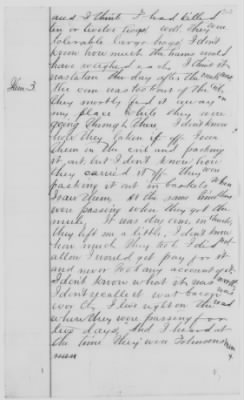 and I think I had killed
ten or twelve hogs well they were
tolerable large hogs I don't
know how much the hams would
have weighed each I think it
was taken the day after the
Item 3. the corn was took out of the crib,
they mostly fed it away in
my place while they were
going through there I don't know
how they taken it off I seen
them in the crib and packing
it out but I don't know how
they carried it off they were
packing it out in baskets when
I saw them, at the same time they
were passing when they got the
mule. I was day corn in the crib,
they left me a little, I don't know
how much they took I did not
allow I would get pay for it
and never took any account of it.
I don't know what it was worth
I don't recollect what bacon was
worth I live right on the road
where they were passing for
days, and I heard at
the time they were Johnsons
men